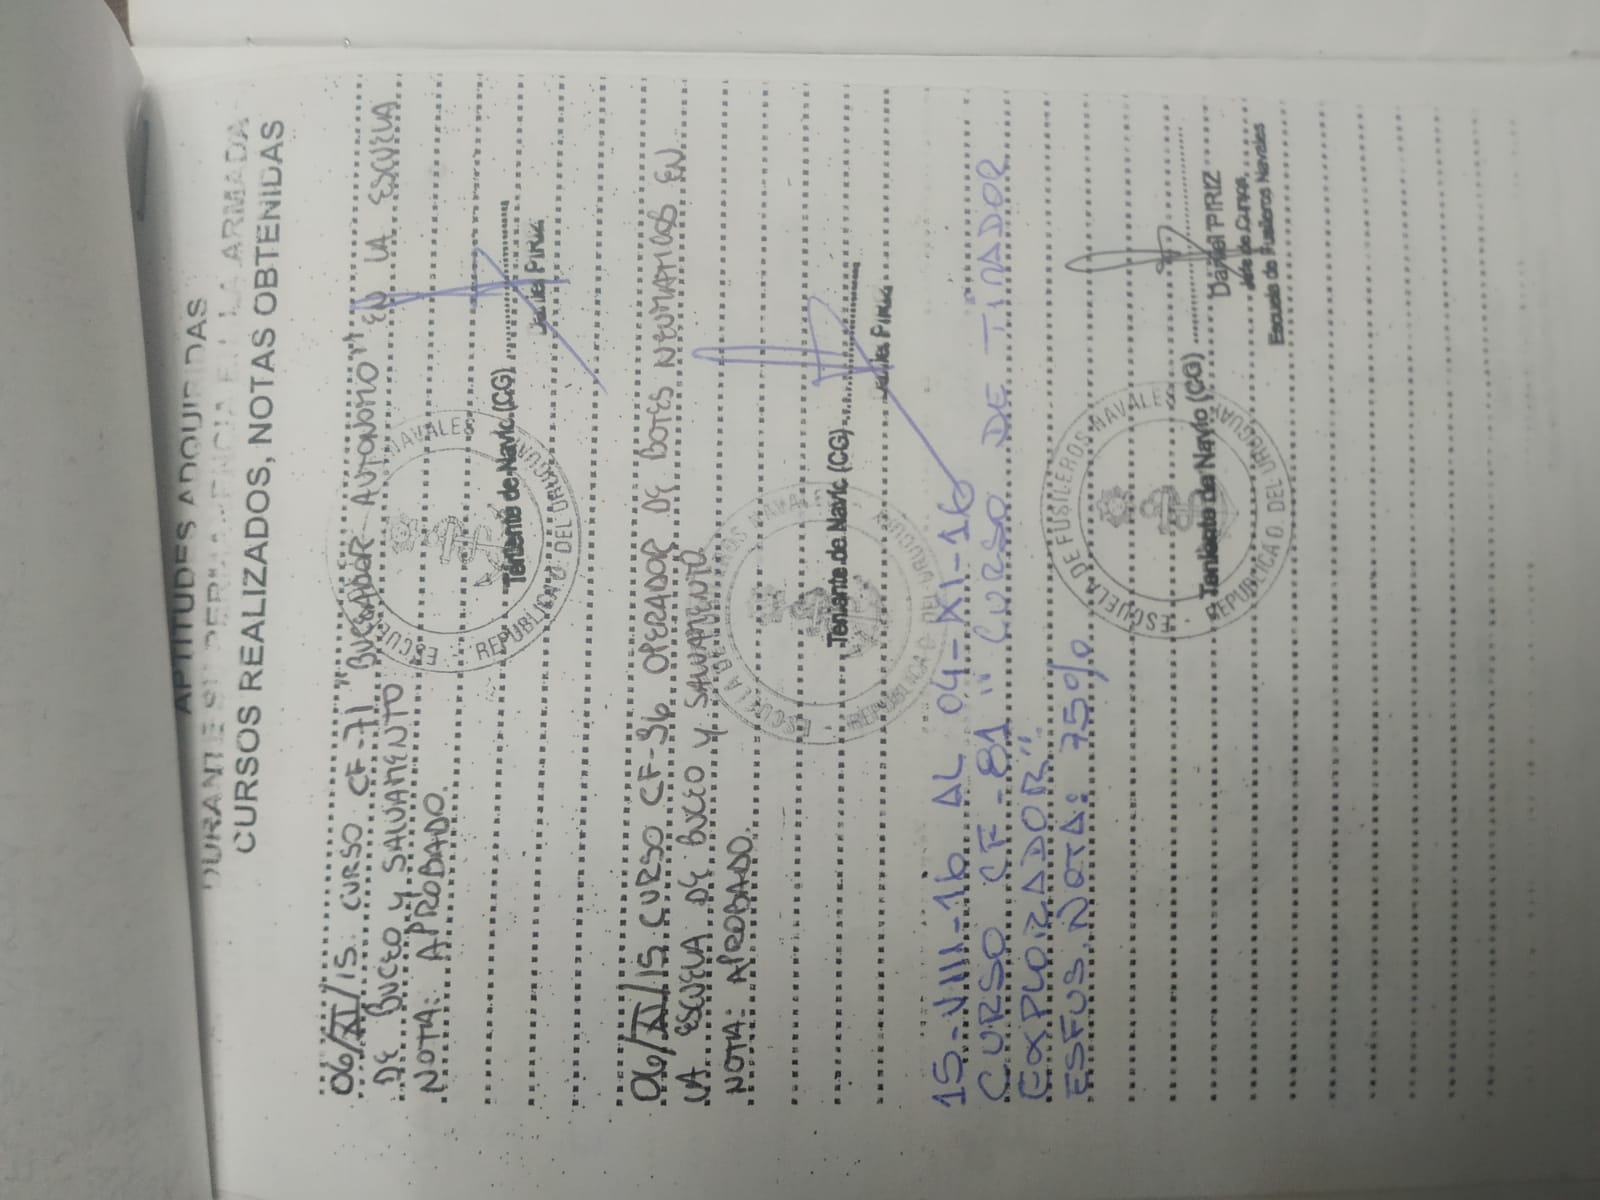 APTITUDES ADQUIRIDAS
DURANTE SU PERMANENCIA EN LA ARMADA
CURSOS REALIZADOS, NOTAS OBTENIDAS
06/XI/15. CURSO CF-71 "BUCEADOR AUTONOMO" EN LA ESCUELA
DE BUCEO Y SALVAMENTO
NOTA: APROBADO.
ESCUELA NAVALES
REPUBLICA O. DEL URUGUAY
Teniente de Navío (CG)
PIRIZ
06/XI/15. CURSO CF-36 OPERADOR DE BOTES NEUMATICOS EN
LA ESCUELA DE BUCEO Y SALVAMENTO
NOTA: APROBADO.
ESCUELA DE FUSILEROS NAVALES
REPUBLICA O. DEL URUGUAY
Teniente de Navío (CG)
PIRIZ
15-VIII-16 AL 04-XI-16
CURSO CF-81 "CURSO DE TIRADOR
EXPLORADOR"
ESFUS. NOTA: 75%
ESCUELA DE FUSILEROS NAVALES
REPUBLICA O. DEL URUGUAY
Teniente de Navío (CG)
Daniel PIRIZ
Jefe de Cursos
Escuela de Fusileros Navales